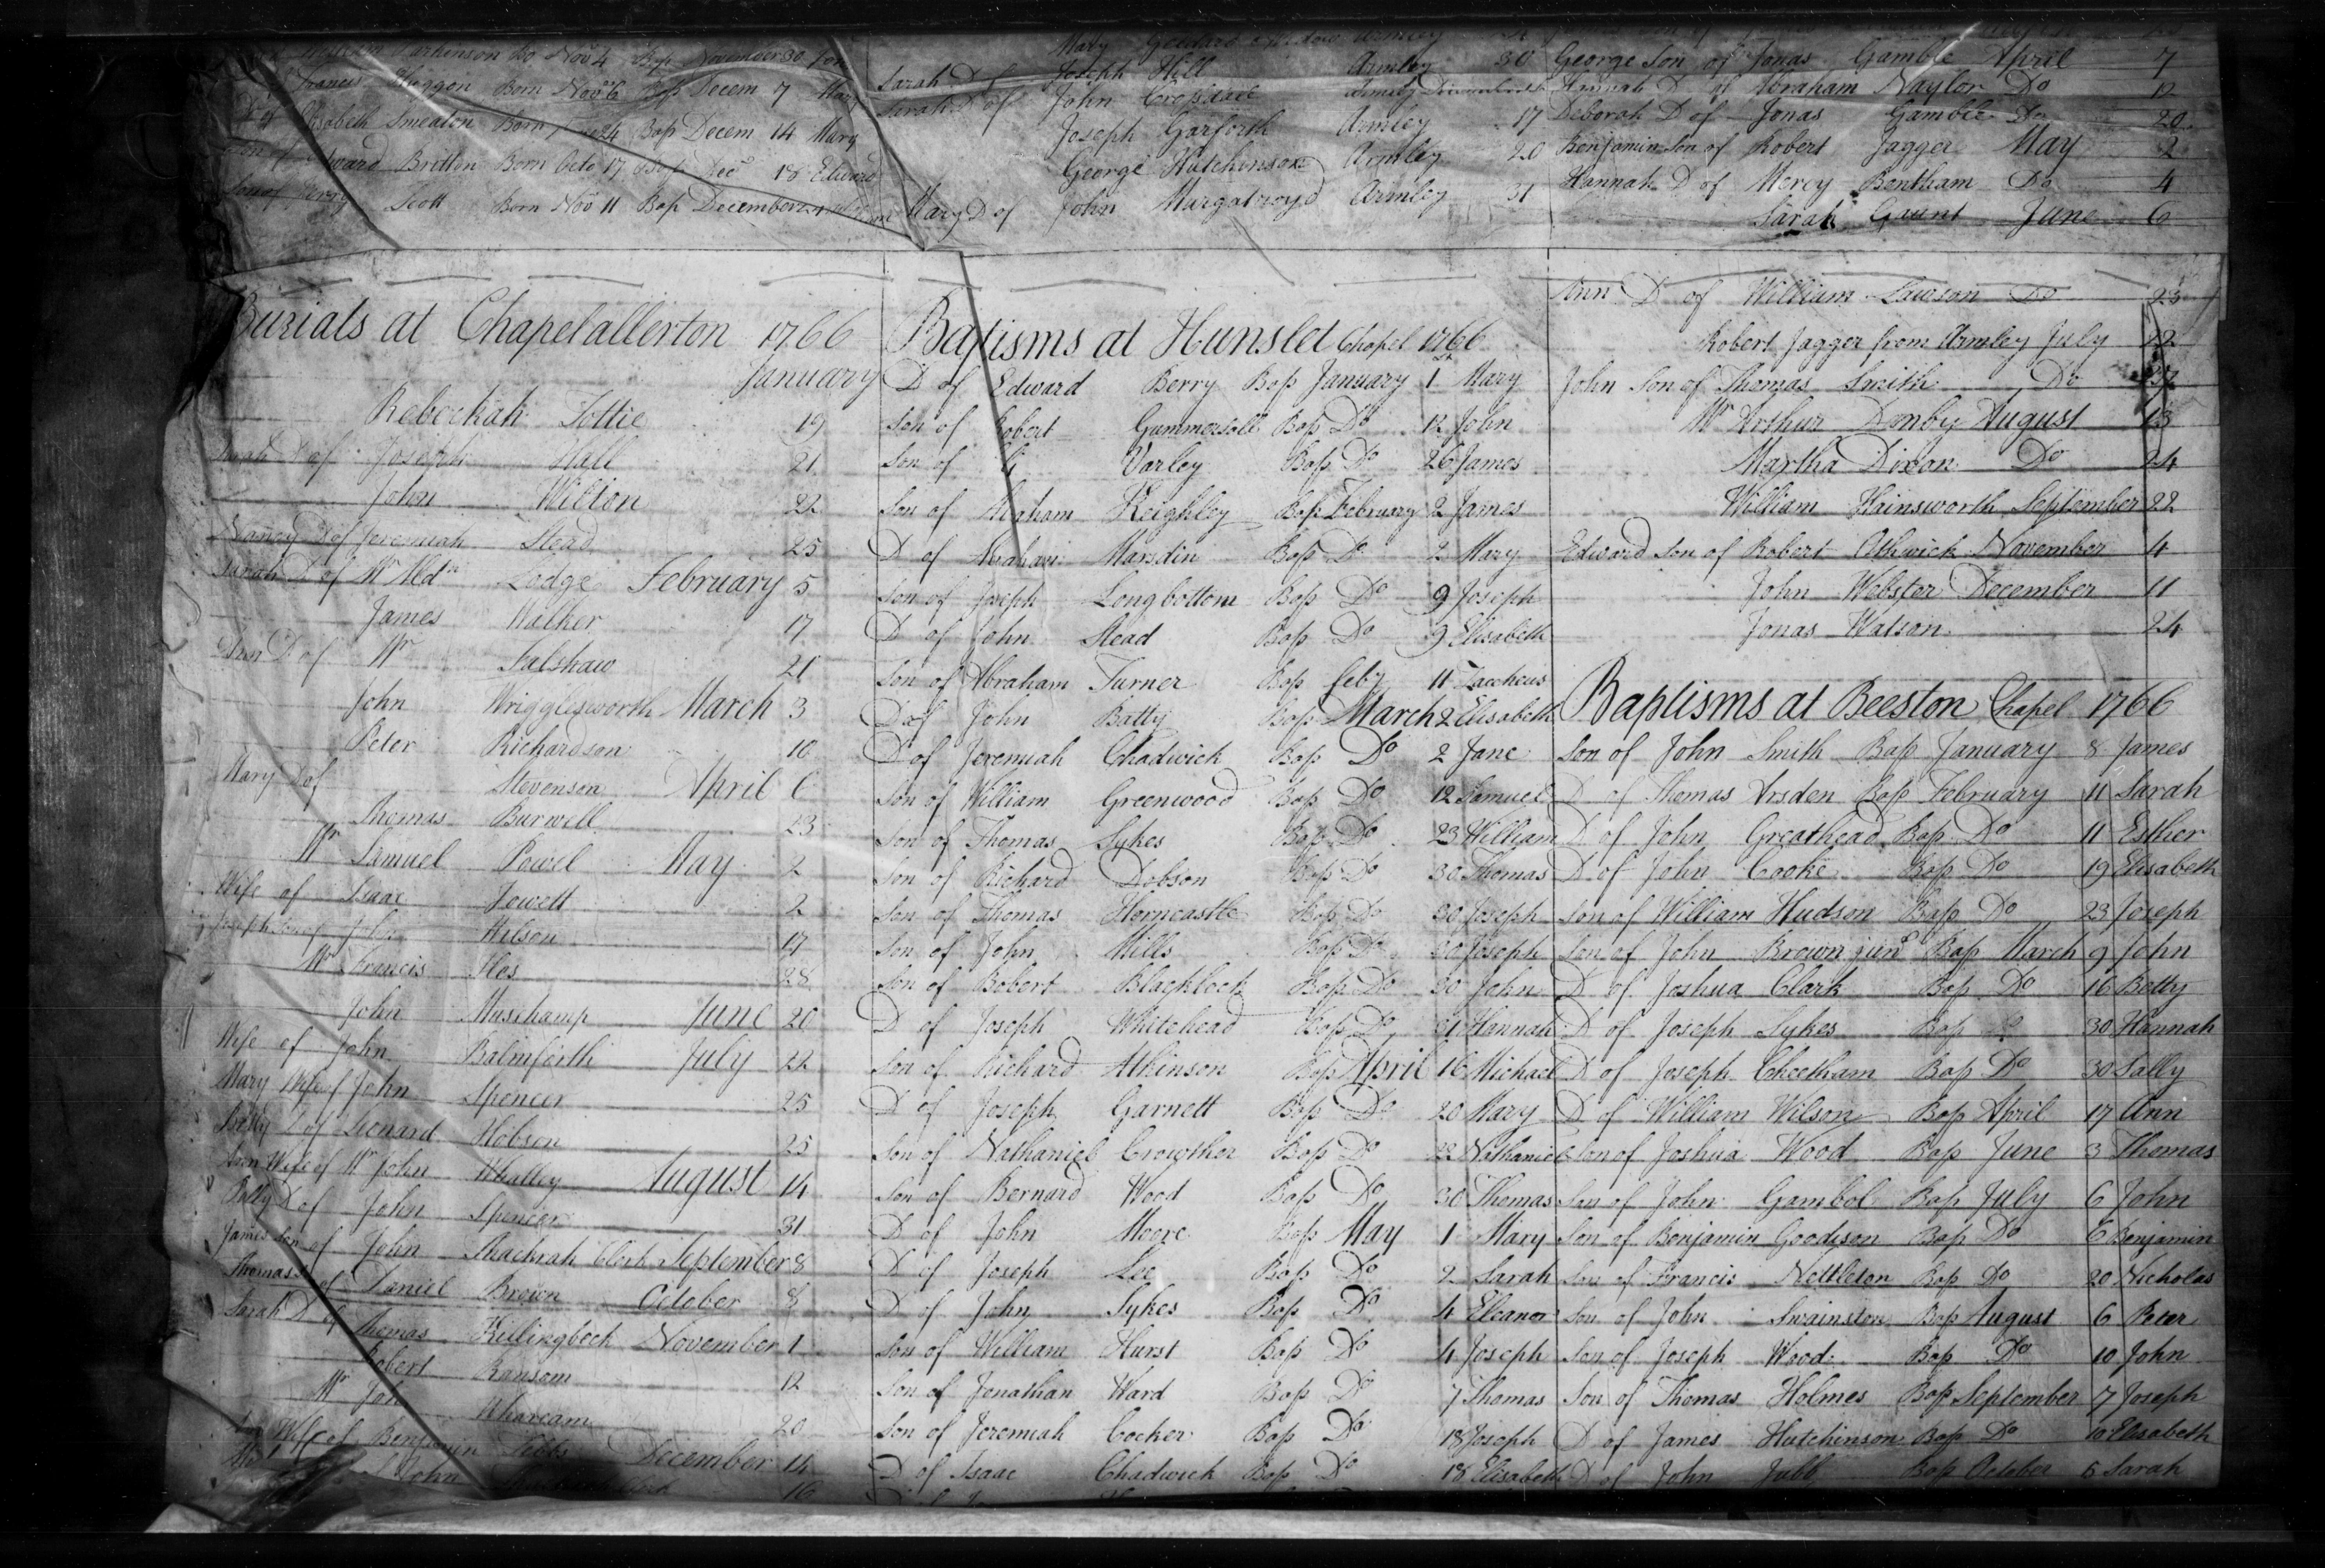 Born Nov 4 Bap November 30
Francis Born Bap Decem 7 Mary
D of Elisabeth Smeaton Born 24 Bap Decem 14 Mary
Edward Britton Born Octo 17 Bap Dec 18 Edward
Son of Scott Born Nov 11 Bap December
Burials at Chapelallerton 1766
January
Rebeckah Tottie 19
D of Joseph Hall 21
John Wilton 22
Nancy D of Jeremiah Stead 25
Sarah D of Lodge February 5
James Walker 17
Ann D of Mr Falshaw 21
John Wrigglesworth March 3
Peter Richardson 10
Mary D of Stevenson April 6
Thomas Burwell 23
Mr Samuel Powel May 2
Wife of Isaac Jowett 2
Joseph Son of John Wilson 17
Mr Francis Iles 28
John Muschamp June 20
Wife of John Balmforth July 22
Mary Wife of John Spencer 25
Betty D of Leonard Hobson 25
Ann Wife of Mr John Whalley August 14
Betty D of John Spencer 31
James Son of John Thackrah Clerk September 8
Thomas S of Daniel Brown October 8
Sarah D of Thomas Killingbeck November 1
Robert Ransom 12
Mr John Whaream 20
Wife of Benjamin December 14
John 16
Mary Goddard Widow Armley
Sarah D of Joseph Hill Armley 30
Sarah D of John
Joseph Garforth Armley 17
George Hutchinson Armley 20
Mary D of John Murgatroyd Armley 31
Baptisms at Hunslet Chapel 1766
D of Edward Berry Bap January 1st Mary
Son of Robert Gummersall Bap Do 12 John
Son of Varley Bap Do 26 James
Son of Abraham Keighley Bap February 2 James
D of Abraham Marsdin Bap Do 2 Mary
Son of Joseph Longbottom Bap Do 9 Joseph
D of John Stead Bap Do 9 Elisabeth
Son of Abraham Turner Bap feby 11 Zaccheus
D of John Batty Bap March 2 Elisabeth
D of Jeremiah Chadwick Bap Do 2 Jane
Son of William Greenwood Bap Do 12 Samuel
Son of Thomas Sykes Bap Do 23 William
Son of Richard Dobson Bap Do 30 Thomas
Son of Thomas Horncastle Bap Do 30 Joseph
Son of John Mills Bap Do 30 Joseph
Son of Robert Blacklock Bap Do 30 John
D of Joseph Whitehead Bap Do 31 Hannah
Son of Richard Atkinson Bap April 16 Michael
D of Joseph Garnett Bap Do 20 Mary
Son of Nathaniel Crowther Bap Do 22 Nathaniel
Son of Bernard Wood Bap Do 30 Thomas
D of John Moore Bap May 1 Mary
D of Joseph Lee Bap Do 2 Sarah
D of John Sykes Bap Do 4 Eleanor
Son of William Hurst Bap Do 4 Joseph
Son of Jonathan Ward Bap Do 7 Thomas
Son of Jeremiah Cocker Bap Do 18 Joseph
D of Isaac Chadwick Bap Do 18 Elisabeth
George Son of Jonas Gamble April 7
Hannah D of Abraham Naylor Do 12
Deborah D of Jonas Gamble Do 20
Benjamin Son of Robert Jagger May 2
Hannah D of Mercy Bentham Do 4
Sarah Gaunt June 6
Ann D of William Lawson Do 23
Robert Jagger from Armley July 22
John Son of Thomas Smith Do
Mr Arthur Danby August 13
Martha Dixon Do 24
William Hainsworth September 22
Edward Son of Robert Athwick November 4
John Webster December 11
Jonas Watson 24
Baptisms at Beeston Chapel 1766
Son of John Smith Bap January 8 James
D of Thomas Arsden Bap February 11 Sarah
D of John Greathead Bap Do 11 Esther
D of John Cooke Bap Do 19 Elisabeth
Son of William Hudson Bap Do 23 Joseph
Son of John Brown junr Bap March 9 John
D of Joshua Clark Bap Do 16 Betty
D of Joseph Sykes Bap Do 30 Hannah
D of Joseph Cheetham Bap Do 30 Sally
D of William Wilson Bap April 17 Ann
Son of Joshua Wood Bap June 3 Thomas
Son of John Gambol Bap July 6 John
Son of Benjamin Goodison Bap Do 6 Benjamin
Son of Francis Nettleton Bap Do 20 Nicholas
Son of John Swainston Bap August 6 Peter
Son of Joseph Wood Bap Do 10 John
Son of Thomas Holmes Bap September 7 Joseph
D of James Hutchinson Bap Do 10 Elisabeth
D of John Jubb Bap October 5 Sarah